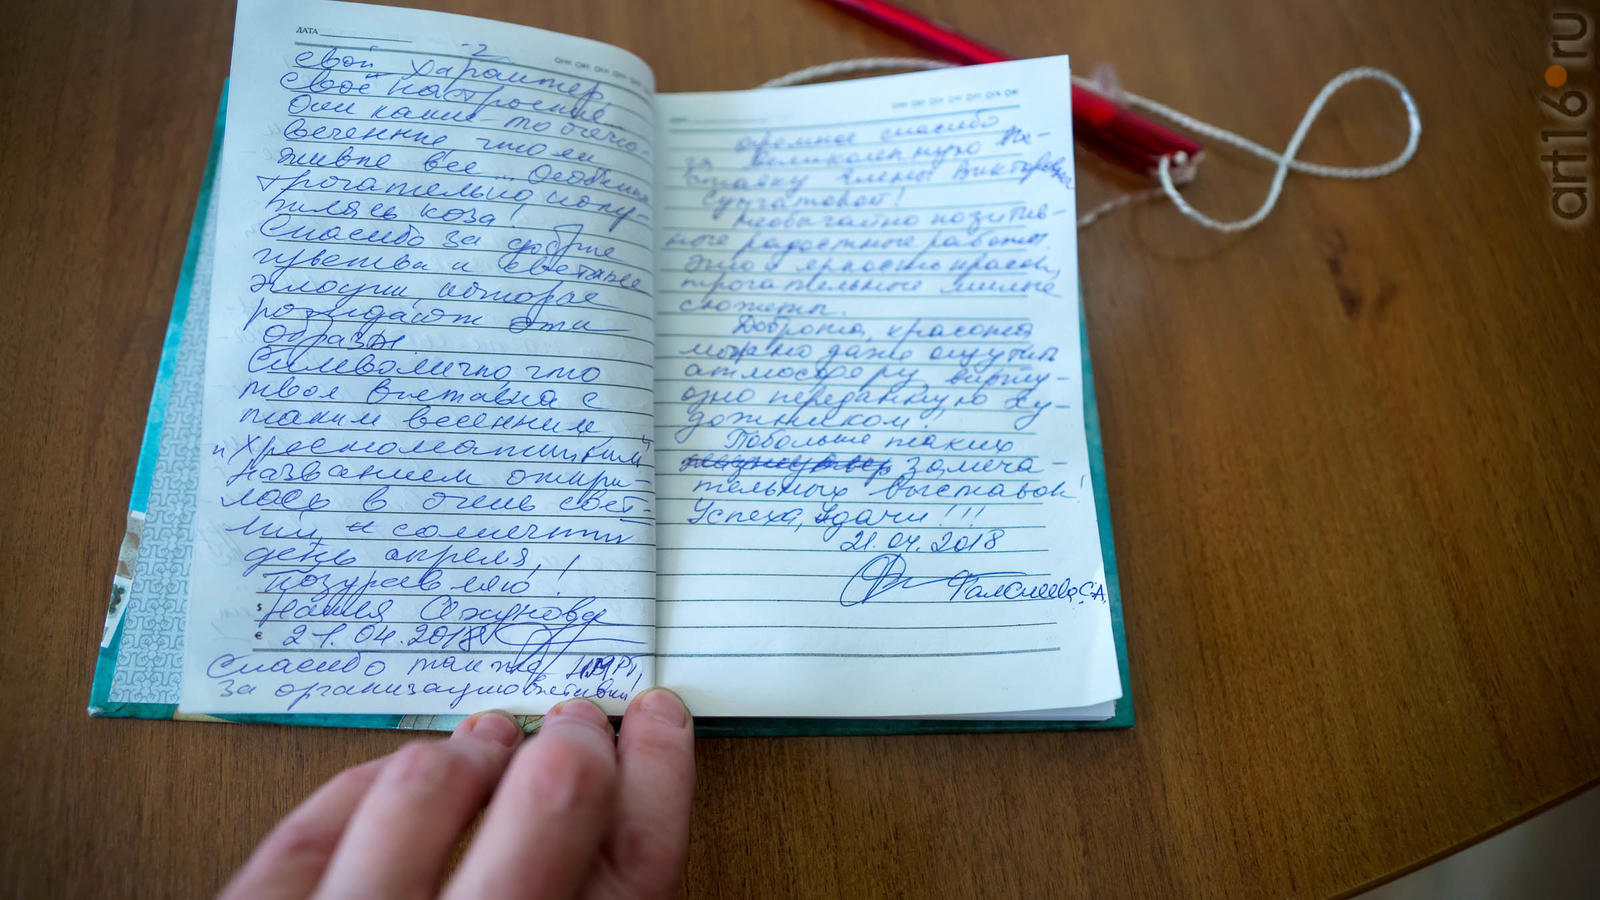 ДАТА
-2-
свой характер
своё настроение
Они какие-то очело-
веченные что ли
живые все... Особенно
трогательно полу-
чилась коза!
Спасибо за добрые
чувства и светлые
эмоции, которые
рождают эти
образы
Символично, что
твоя выставка с
таким весенним
и "Хрестоматийным"
названием откры-
лась в очень свет-
лый и солнечный
день апреля!
Поздравляю!
Наиля Ахунова
21.04.2018
Спасибо также
за организацию выставки!
огромное спасибо
за великолепную
выставку Елены Викторовны
Сунгатовой!
Необычайно позитив-
ные радостные работы.
Это и яркость красок,
трогательные милые
сюжеты.
Доброта, красота
можно даже ощутить
атмосферу, вирту-
озно переданную ху-
дожником.
Побольше таких
замеча-
тельных выставок!
Успеха, Удачи!!!
21.04.2018
С.А.
art16.ru